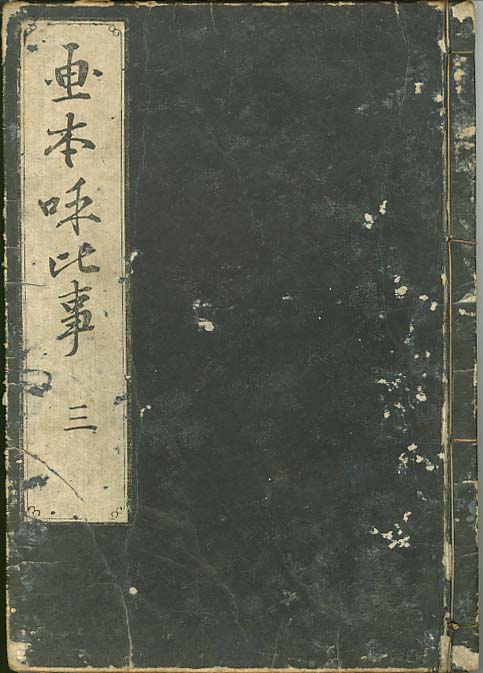 画本咊比事 三